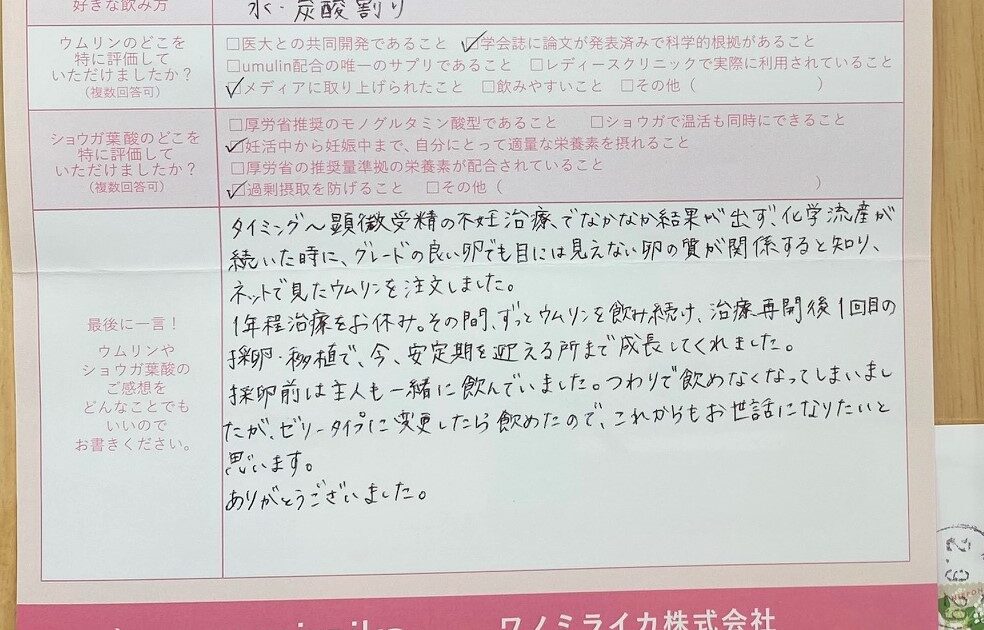 好きな飲み方
水・炭酸割り
ウムリンのどこを
特に評価して
いただけましたか？
（複数回答可）
□医大との共同開発であること ☑学会誌に論文が発表済みで科学的根拠があること
□umulin配合の唯一のサプリであること □レディースクリニックで実際に利用されていること
☑メディアに取り上げられたこと □飲みやすいこと □その他（ ）
ショウガ葉酸のどこを
特に評価して
いただけましたか？
（複数回答可）
□厚労省推奨のモノグルタミン酸型であること □ショウガで温活も同時にできること
☑妊活中から妊娠中まで、自分にとって適量な栄養素を摂れること
□厚労省の推奨量準拠の栄養素が配合されていること
☑過剰摂取を防げること □その他（ ）
最後に一言！
ウムリンや
ショウガ葉酸の
ご感想を
どんなことでも
いいので
お書きください。
タイミング〜顕微受精の不妊治療でなかなか結果が出ず、化学流産が
続いた時に、グレードの良い卵でも目には見えない卵の質が関係すると知り、
ネットで見たウムリンを注文しました。
1年程治療をお休み。その間、ずっとウムリンを飲み続け、治療再開後1回目の
採卵・移植で、今、安定期を迎える所まで成長してくれました。
採卵前は主人も一緒に飲んでいました。つわりで飲めなくなってしまいまし
たが、ゼリータイプに変更したら飲めたので、これからもお世話になりたいと
思います。
ありがとうございました。
ワノミライカ株式会社